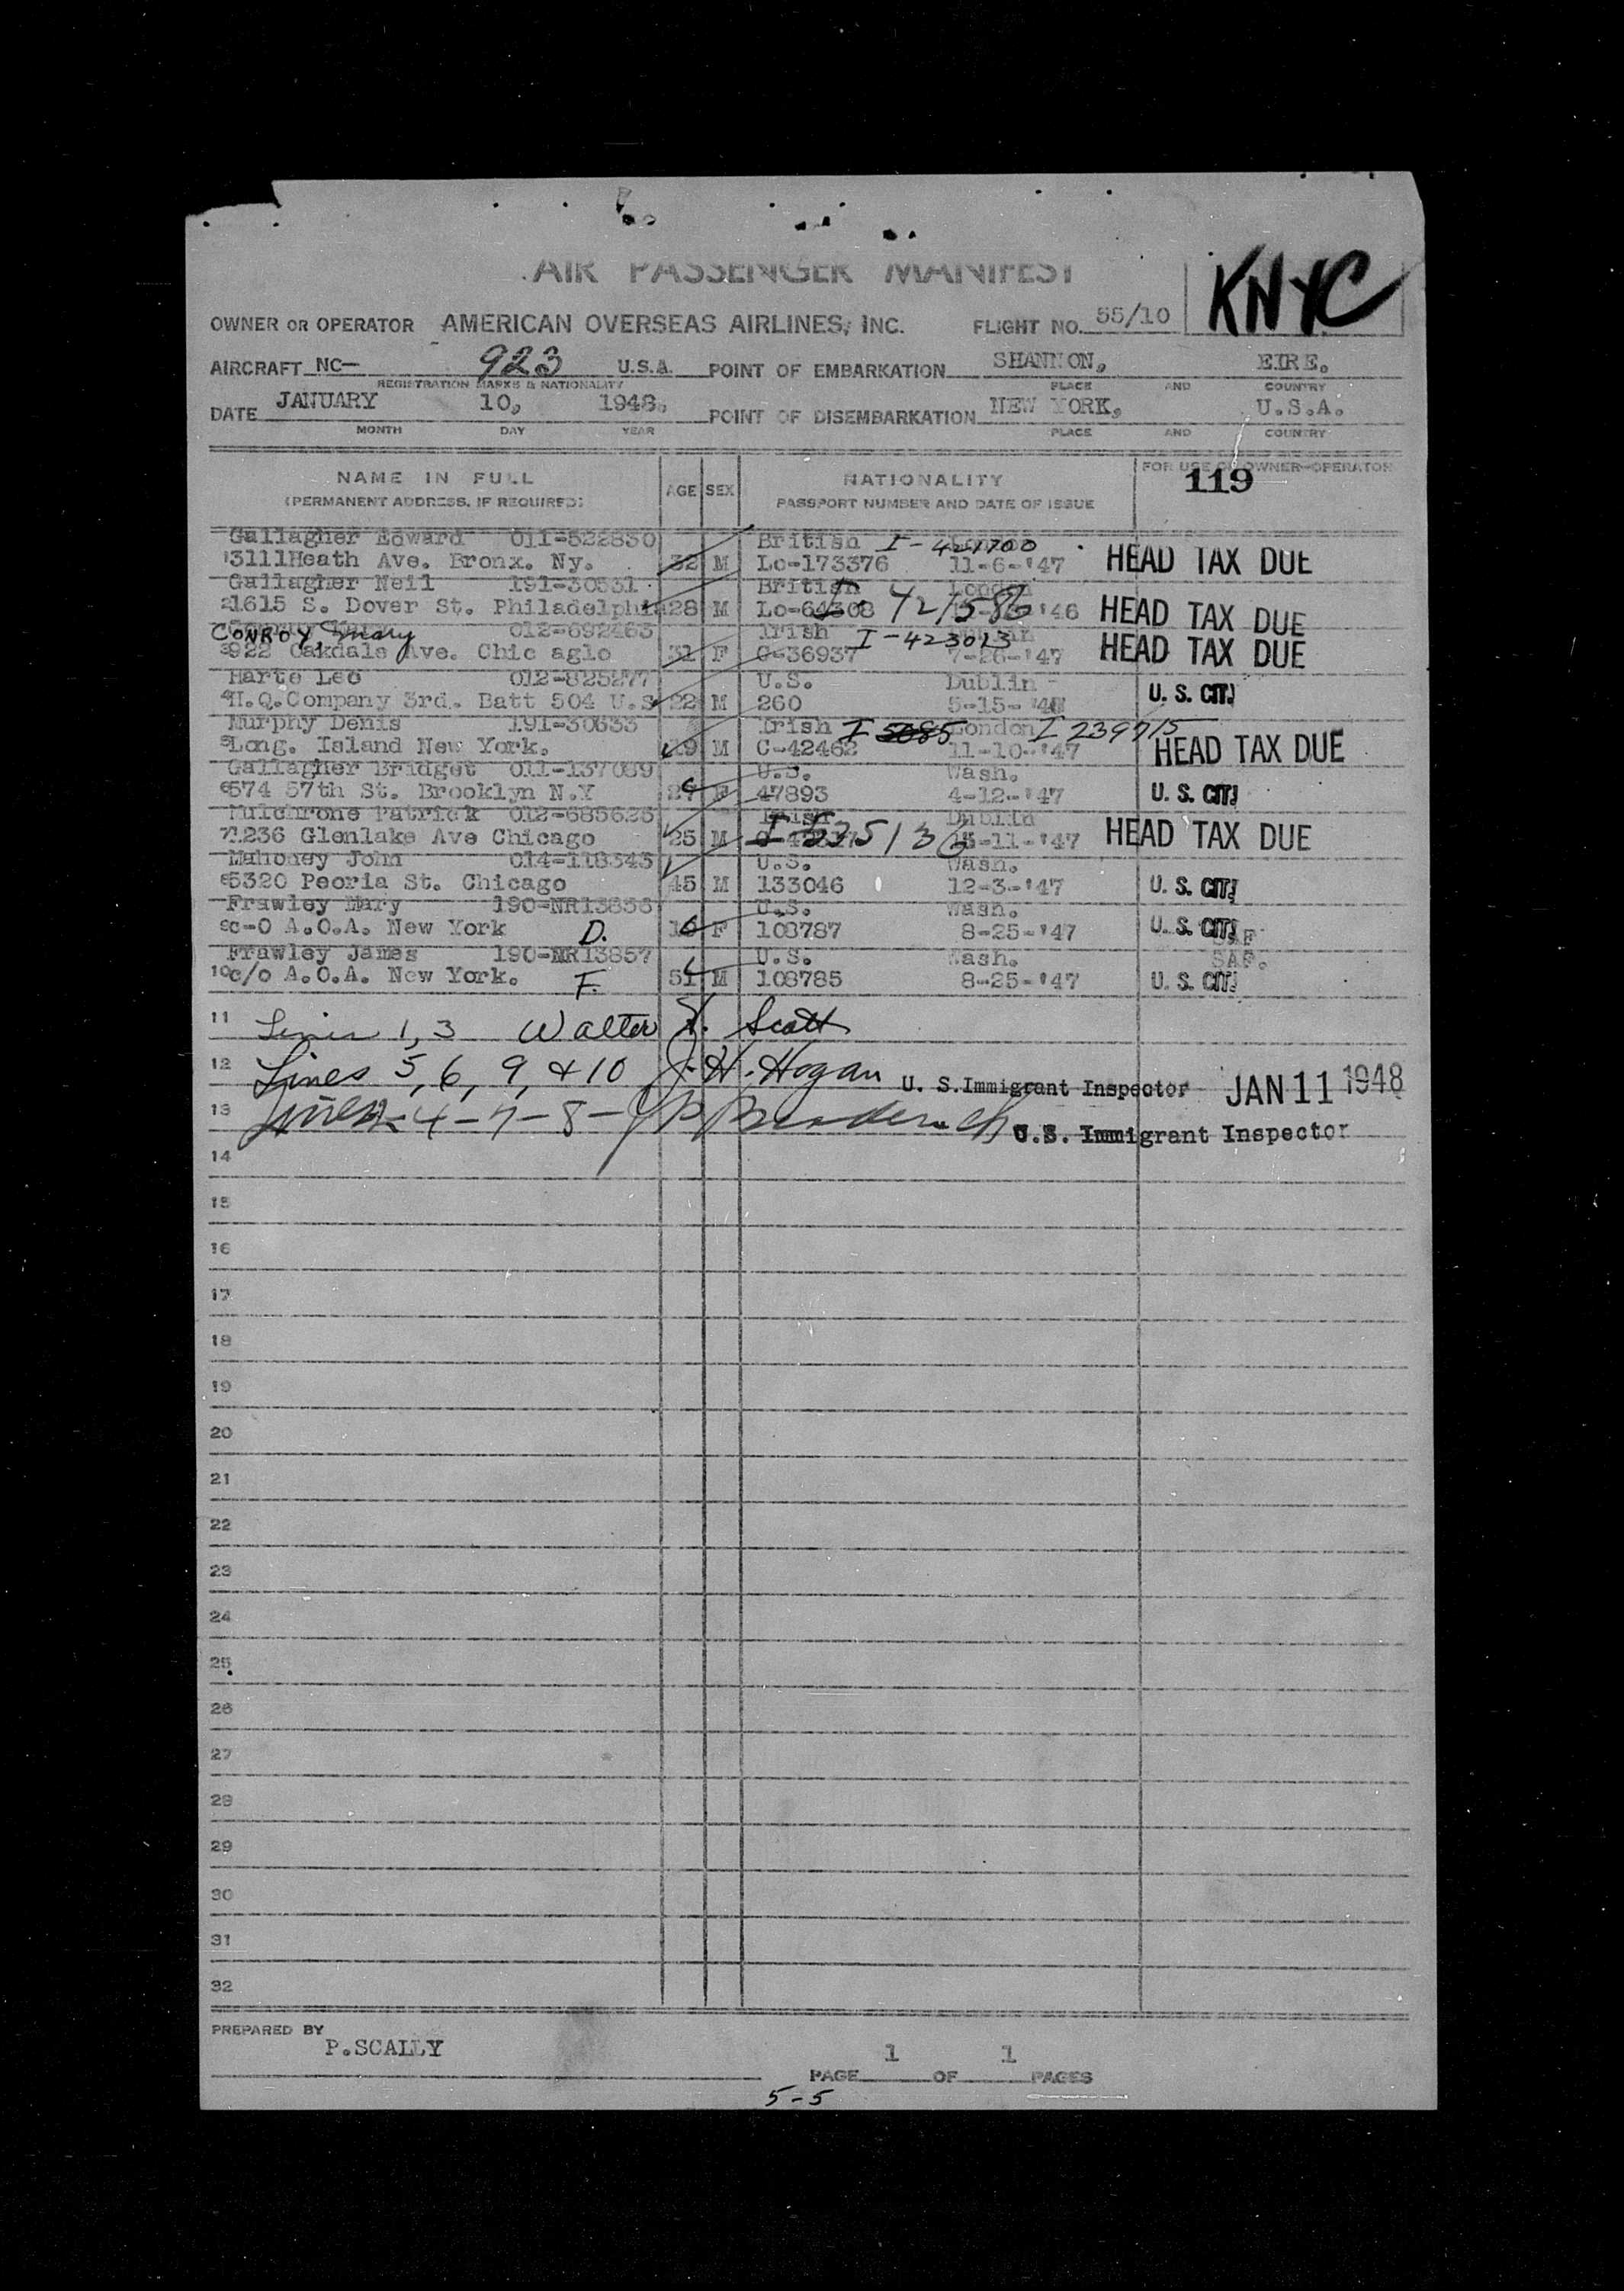 AIR PASSENGER MANIFEST
KNYC
OWNER OR OPERATOR AMERICAN OVERSEAS AIRLINES, INC. FLIGHT NO. 55/10
AIRCRAFT NC- 923 U.S.A. POINT OF EMBARKATION SHANNON, EIRE.
REGISTRATION MARKS & NATIONALITY PLACE AND COUNTRY
DATE JANUARY 10, 1948. POINT OF DISEMBARKATION NEW YORK, U.S.A.
MONTH DAY YEAR PLACE AND COUNTRY
NAME IN FULL AGE SEX NATIONALITY FOR USE OF OWNER-OPERATOR
(PERMANENT ADDRESS, IF REQUIRED) PASSPORT NUMBER AND DATE OF ISSUE 119
Gallagher Edward 011-522830 British I-421700
1 3111Heath Ave. Bronx. Ny. 32 M Lo-173376 11-6-'47 HEAD TAX DUE
Gallagher Neil 191-30531 British London
2 1615 S. Dover St. Philadelphia 28 M 421586 '46 HEAD TAX DUE
CONROY, Mary 012-692463 Irish I-423013
3 922 Oakdale Ave. Chic aglo 31 F C-36937 7-26-'47 HEAD TAX DUE
Harte Leo 012-825277 U.S. Dublin
4 H.Q.Company 3rd. Batt 504 U.S 22 M 260 5-15- U. S. CIT.
Murphy Denis 191-30633 Irish I 5085 London I 239715
5 Long. Island New York. M C-42462 11-10-'47 HEAD TAX DUE
Gallagher Bridget 011-137089 U.S. Wash.
6 574 57th St. Brooklyn N.Y F 47893 4-12-'47 U. S. CIT.
Mulchrone Patrick 012-685625 Irish Dublin
7 1236 Glenlake Ave Chicago 25 M -11-'47 HEAD TAX DUE
Mahoney John 014-118343 U.S. Wash.
8 5320 Peoria St. Chicago 45 M 133046 12-3-'47 U. S. CIT.
Frawley Mary 190-NR13856 U.S. Wash.
9 c-O A.O.A. New York D. F 108787 8-25-'47 U. S. CIT. SAF.
Frawley James 190-NR13857 U.S. Wash. SAF.
10 c/o A.O.A. New York. F. 51 M 108785 8-25-'47 U. S. CIT.
11 Lines 1, 3 Walter Scott
12 Lines 5, 6, 9, & 10 J. H. Hogan U. S. Immigrant Inspector JAN 11 1948
13 Lines 4-7-8- U.S. Immigrant Inspector
14
15
16
17
18
19
20
21
22
23
24
25
26
27
28
29
30
31
32
PREPARED BY
P.SCALLY
PAGE 1 OF 1 PAGES
5-5